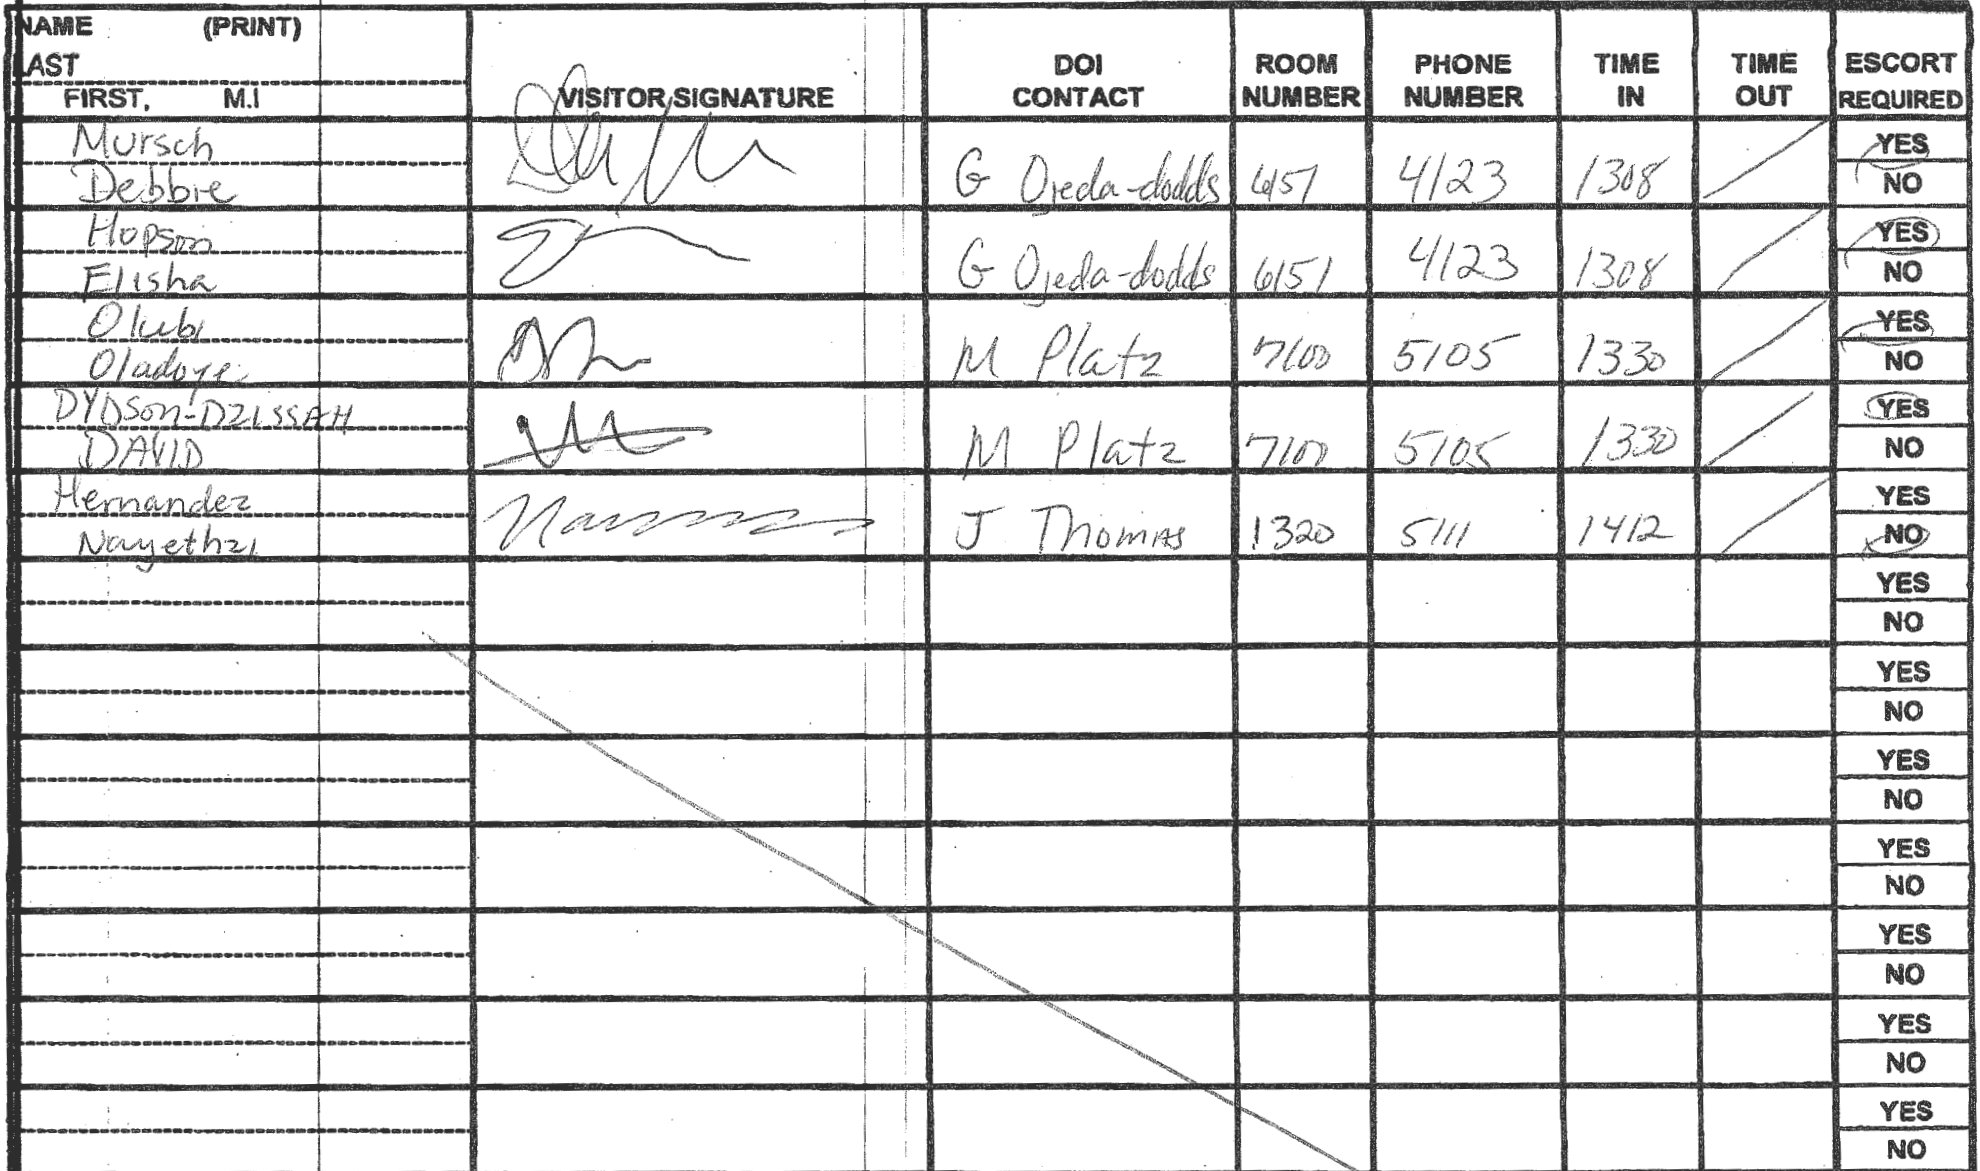 NAME (PRINT)
LAST
FIRST, M.I
VISITOR SIGNATURE
DOI CONTACT
ROOM NUMBER
PHONE NUMBER
TIME IN
TIME OUT
ESCORT REQUIRED
Mursch
Debbie
G Ojeda-dodds 6151 4123 1308
YES
NO
Hopson
Elisha
G Ojeda-dodds 6151 4123 1308
YES
NO
Olubi
Oladoye
M Platz 7100 5105 1330
YES
NO
DYDSon-DZISSAH
DAVID
M Platz 7100 5105 1330
YES
NO
Hernandez
Nayethzi
J Thomas 1320 5111 1412
YES
NO
YES
NO
YES
NO
YES
NO
YES
NO
YES
NO
YES
NO
YES
NO